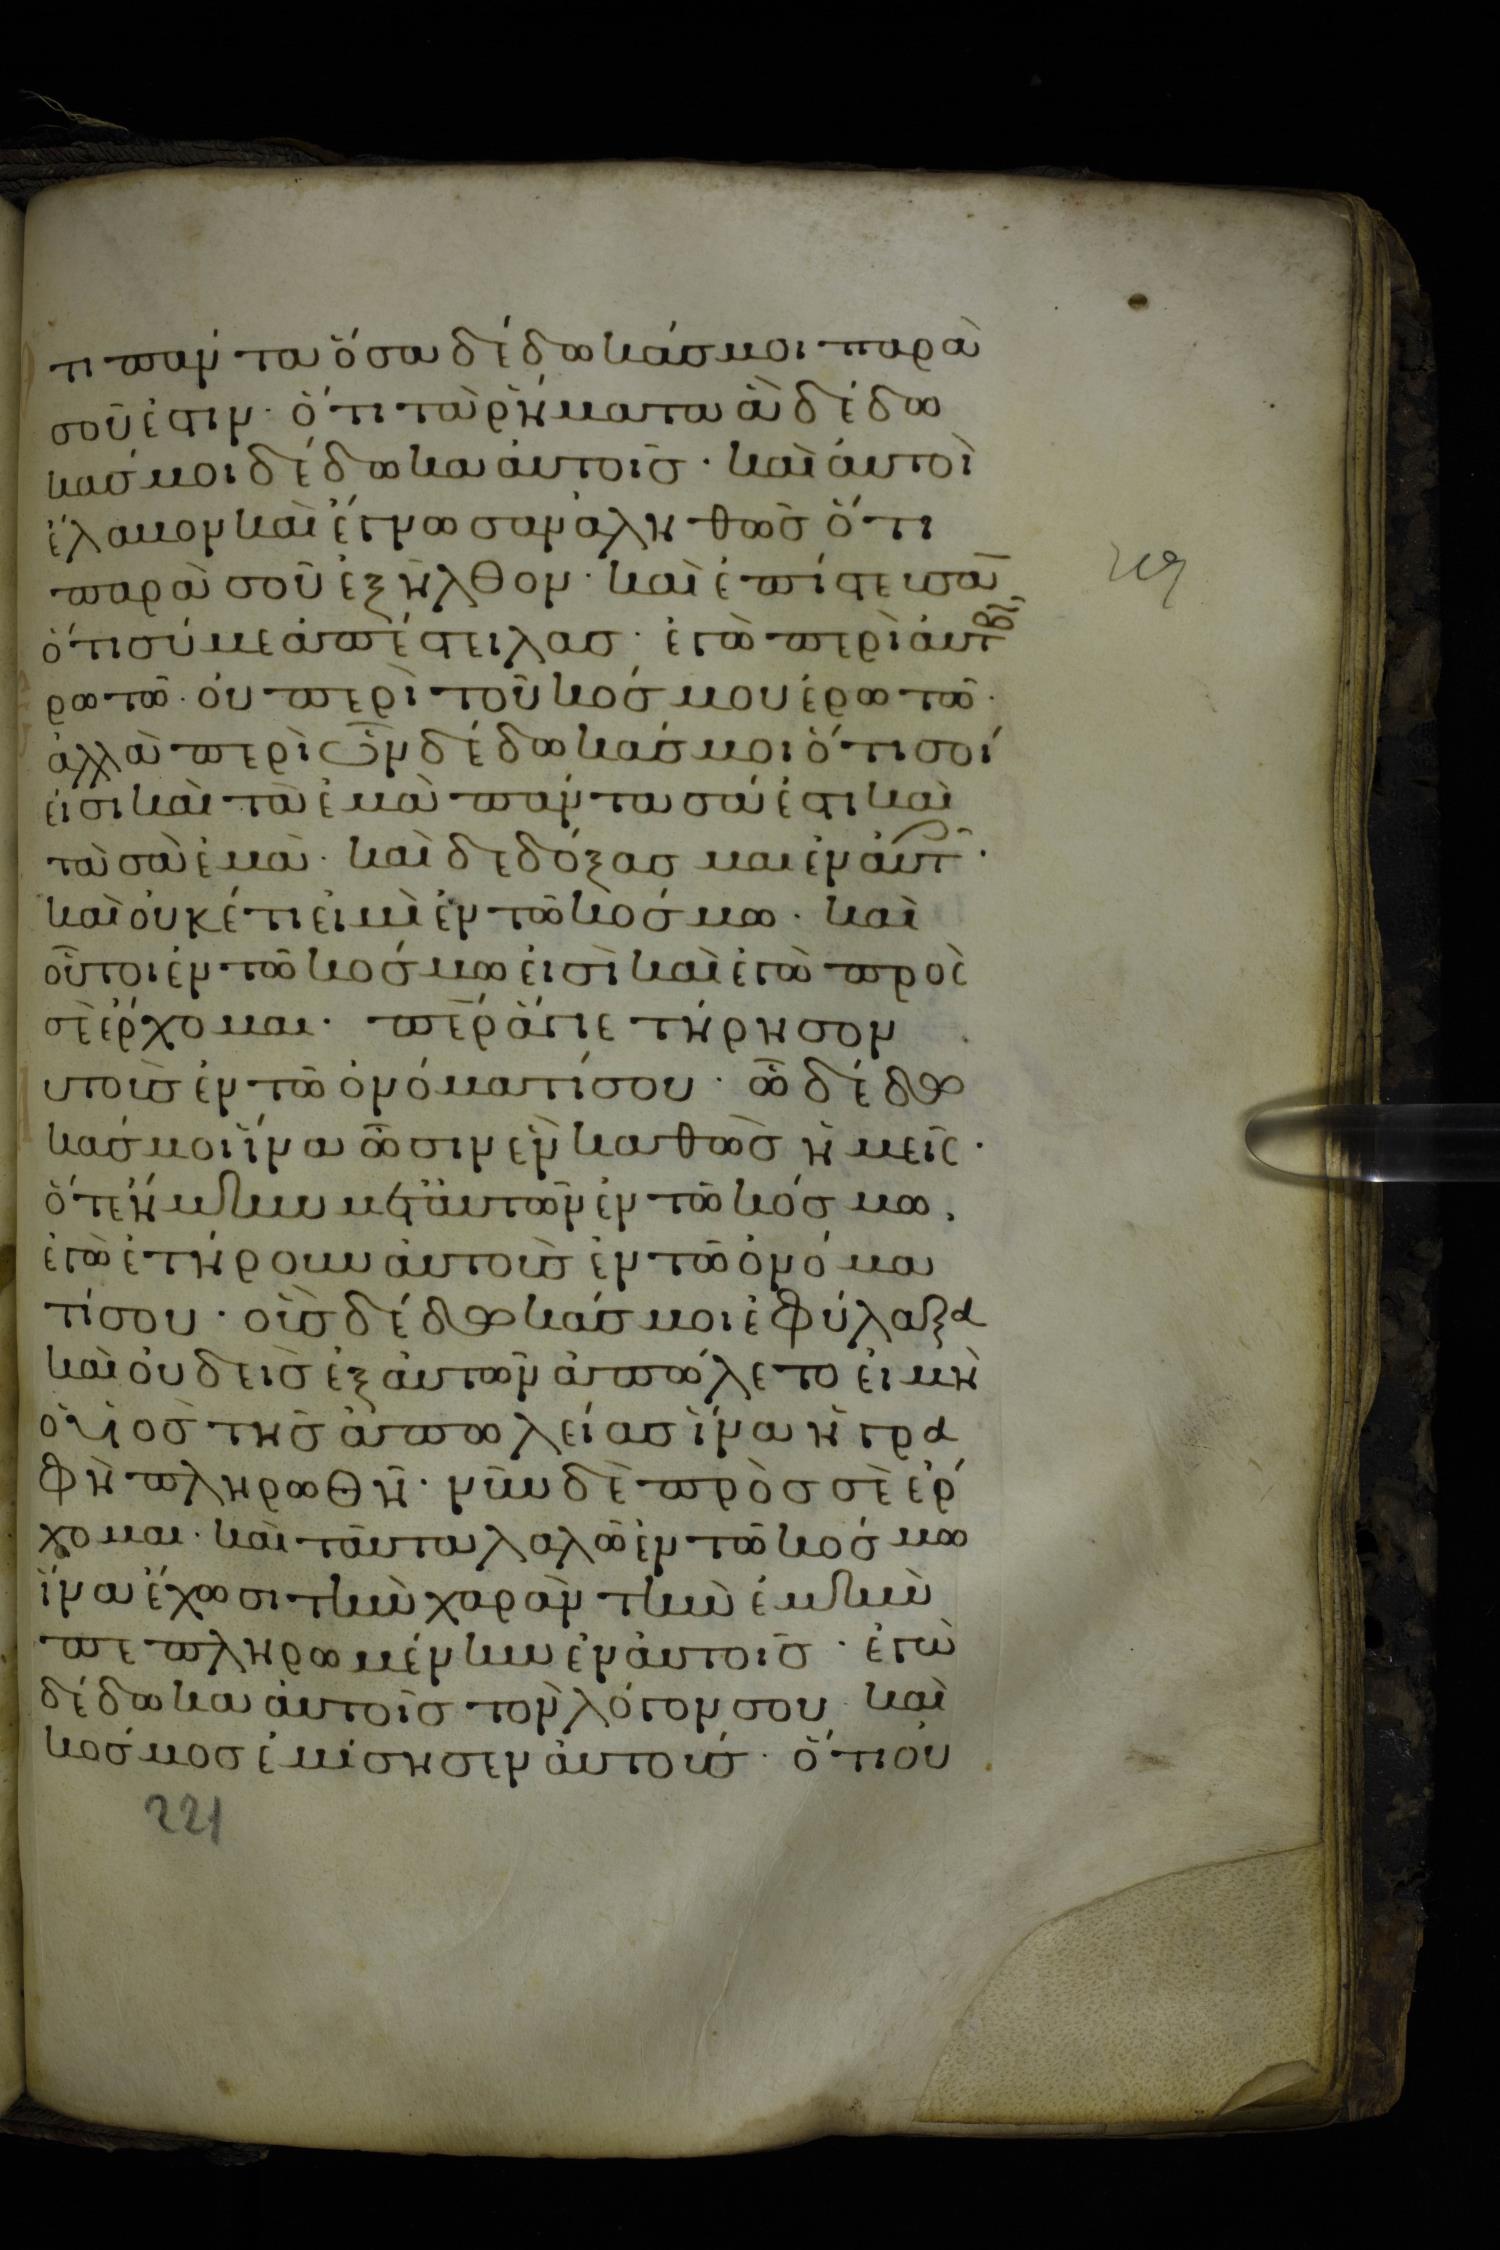 τι πάν τα ὅσα δέδωκάς μοι παρὰ
σοῦ ἐστιν· ὅτι τὰ ῥήματα ἃ δέδω
κάς μοι δέδωκα αὐτοῖς· καὶ αὐτοὶ
ἔλαβον καὶ ἔγνωσαν ἀληθῶς ὅτι
παρὰ σοῦ ἐξῆλθον· καὶ ἐπίστευσα̅
ὅτι σύ με ἀπέστειλας· ἐγὼ περὶ αὐτ
ρωτῶ· οὐ περὶ τοῦ κόσμου ἐρωτῶ·
ἀλλὰ περὶ ὧν δέδωκάς μοι ὅτι σοί
εἰσι καὶ τὰ ἐμὰ πάντα σά ἐστι καὶ
τὰ σὰ ἐμὰ· καὶ δεδόξασμαι ἐν αὐτ·
καὶ οὐκέτι εἰμὶ ἐν τῶ κόσμω· καὶ
οὗτοι ἐν τῶ κόσμω εἰσὶ καὶ ἐγὼ προς
σὲ ἔρχομαι· περ ἅγιε τήρησον
αυτοὺς ἐν τῶ ὀνόματί σου· ὧ δέδω
κάς μοι ἵνα ὦσιν ἓν καθὼς ἡμεῖς·
ὅτε ἤμην μετ αὐτῶν ἐν τῶ κόσμω.
ἐγὼ ἐτήρουν αὐτοὺς ἐν τῶ ὀνόμα
τί σου· οὓς δέδωκάς μοι ἐφύλαξα
καὶ οὐδεὶς ἐξ αὐτῶν ἀπώλετο εἰ μὴ
ὁ ὑϊὸς τῆς ἀπωλείας ἵνα ἡ γρα
φὴ πληρωθῆ· νῦν δὲ πρὸς σὲ ἔρ
χομαι· καὶ ταῦτα λαλῶ ἐν τῶ κόσμω
ἵνα ἔχωσι τὴν χαρὰν τὴν ἐμὴν
πεπληρωμένην ἐν αὐτοῖς· ἐγὼ
δέδωκα αὐτοῖς τὸν λόγον σου καὶ
κόσμος ἐμίσησεν αὐτούς· ὅτι οὐ
221